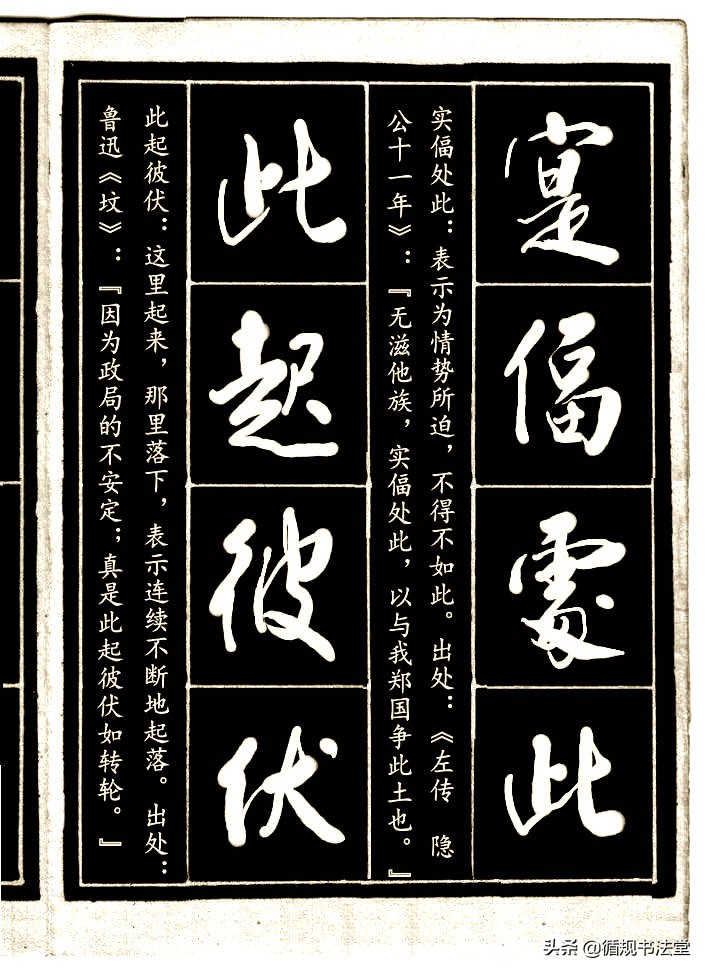 寔偪處此
实偪处此：表示为情势所迫，不得不如此。出处：《左传 隐
公十一年》：『无滋他族，实偪处此，以与我郑国争此土也。』
此起彼伏
此起彼伏：这里起来，那里落下，表示连续不断地起落。出处：
鲁迅《坟》：『因为政局的不安定；真是此起彼伏如转轮。』
头条 @循规书法堂